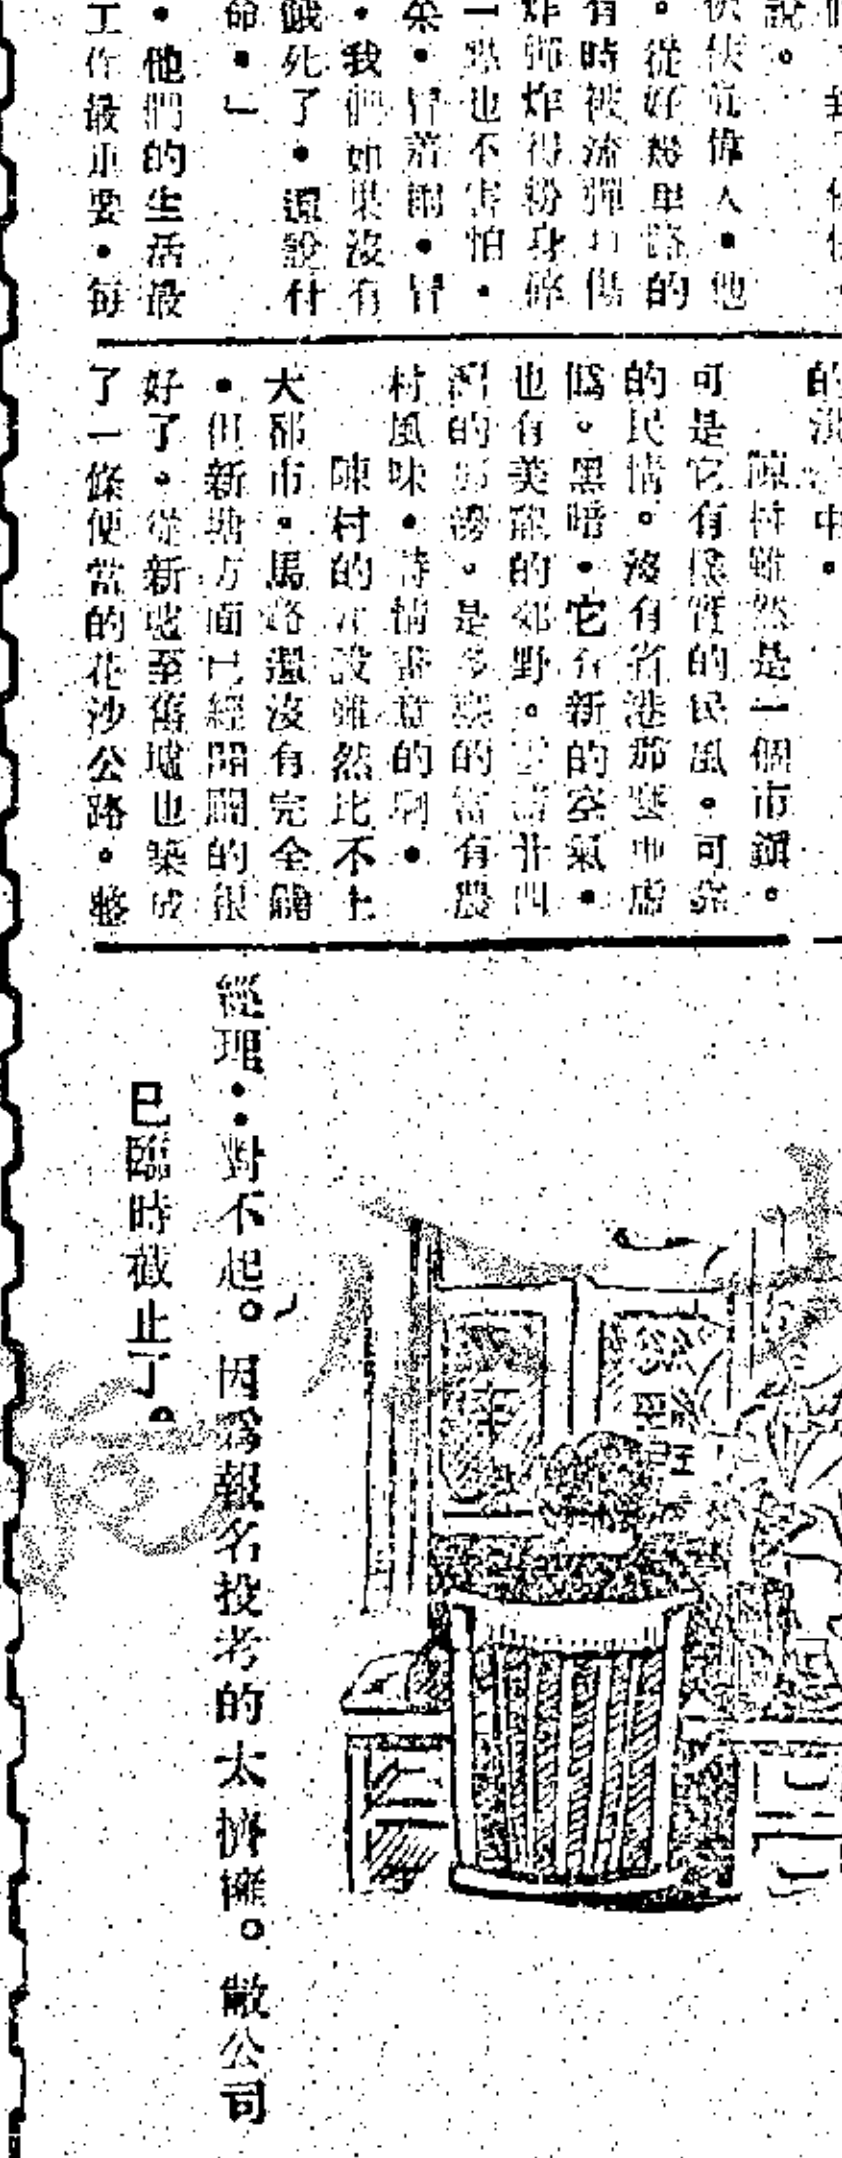 說。
偉人・他
。從好幾里路的
有時被流彈打傷
炸彈炸得粉身碎
一點也不害怕・
・冒着雨・冒
・我們如果沒有
餓死了・還說什
命・」
・他們的生活最
工作最重要・每
的 中・
陳村雖然是一個市鎮。
可是它有樸實的民風・可靠
的民情。沒有省港那麼虛
僞。黑暗・它有新的空氣・
也有美麗的郊野。廿四
的 是多麼的富有農
村風味・詩情畫意的啊・
陳村的 設雖然比不上
大都市。馬路還沒有完全鋪
・但新墟方面已經開闢的很
好了・從新墟至舊墟也築成
了一條便當的花沙公路。整
經理・・對不起。因爲報名投考的太擠擁。敝公司
已臨時截止了。